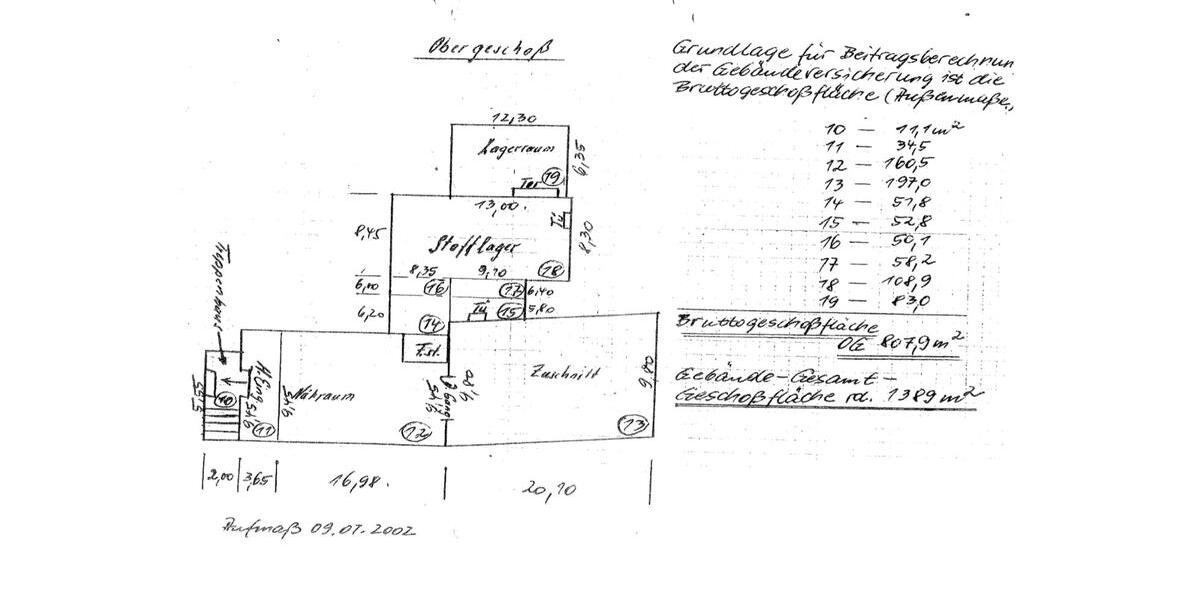 Obergeschoß
Grundlage für Beitragsberechnun
der Gebäudeversicherung ist die
Bruttogeschoßfläche (Außenmaße,
12,30
Lagerraum
6,35
Tor
19
13,00.
Tü
8,45
8,30
Stofflager
8,35
9,10
18
6,00
16
17
6,40
6,20
Tü
15
5,80
14
F.st.
Treppenhaus
N.Eing
9,45
9,45
Nähraum
9,80
Zuschnitt
9,80
5,55
10
11
12
13
2,00
3,65
16,98.
20,10
Aufmaß 09.07.2002
10 — 11,1 m²
11 — 34,5
12 — 160,5
13 — 197,0
14 — 51,8
15 — 52,8
16 — 50,1
17 — 58,2
18 — 108,9
19 — 83,0
Bruttogeschoßfläche
OG 807,9 m²
Gebäude-Gesamt-
Geschoßfläche rd. 1389 m²